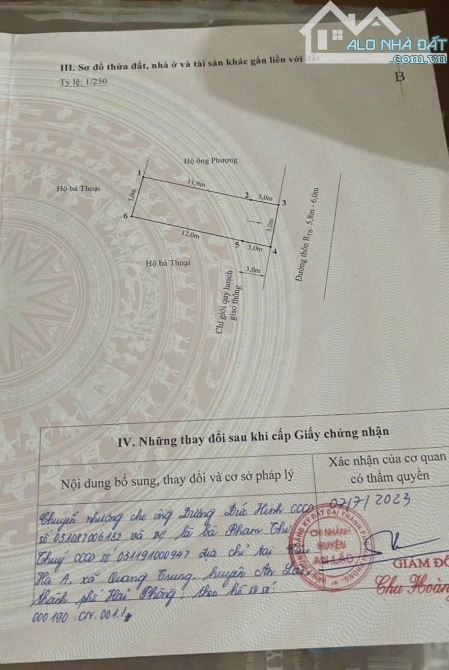 ALO NHÀ ĐẤT
.com.vn
III. Sơ đồ thửa đất, nhà ở và tài sản khác gắn liền với đất
Tỷ lệ: 1/250
B
Hộ ông Phượng
Hộ bà Thoại
1
11,9m
2
3,0m
3
5,0m
5,0m
6
12,0m
5
3,0m
4
Hộ bà Thoại
3,0m
Chỉ giới quy hoạch
giao thông
Đường thôn RTB: 5,8m - 6,0m
IV. Những thay đổi sau khi cấp Giấy chứng nhận
Nội dung bổ sung, thay đổi và cơ sở pháp lý
Xác nhận của cơ quan
có thẩm quyền
Chuyển nhượng cho ông Dương Đức Hinh CCCD
số 031087006182 và vợ là bà Phạm Thị
Thuý CCCD số 031191000947 địa chỉ tại
Hà A, xã Quang Trung, huyện An Lão
thành phố Hải Phòng, theo hồ sơ số
000190.CN.001./.
07/7/2023
CHI NHÁNH
HUYỆN
AN LÃO
GIÁM ĐỐ
Chu Hoàng